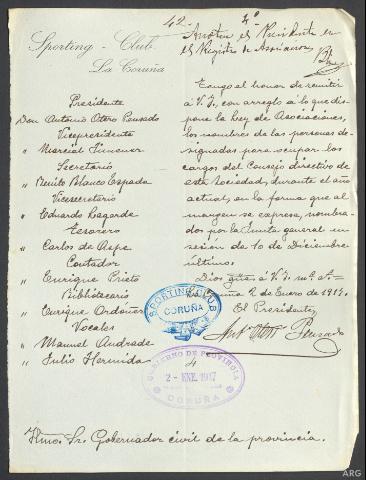 42
4º
Anótese el Presidente en
el Registro de Asociaciones
Sporting-Club
La Coruña
Presidente
Don Antonio Otero Pensado
Vicepresidente
" Marcial Jimenez
Secretario
" Benito Blanco Espada
Vicesecretario
" Eduardo Lagarde
Tesorero
" Carlos de Aspe
Contador
" Enrique Prieto
Bibliotecario
" Enrique Ordóñez
Vocales
" Manuel Andrade
" Julio Hermida
Tengo el honor de remitir
á V. I., con arreglo á lo que dis-
pone la Ley de Asociaciones,
los nombres de las personas de-
signadas para ocupar los
cargos del Consejo directivo de
esta Sociedad, durante el año
actual, en la forma que al
margen se expresa, nombra-
dos por la Junta general en
sesión de 10 de Diciembre
último.
Dios gue á V. I. ms. as.
2 de Enero de 1917.
El Presidente,
Antº Otero Pensado
SPORTING CLUB
CORUÑA
GOBIERNO DE PROVINCIA
2 - ENE. 1917
CORUÑA
Ilmo. Sr. Gobernador civil de la provincia.
ARG